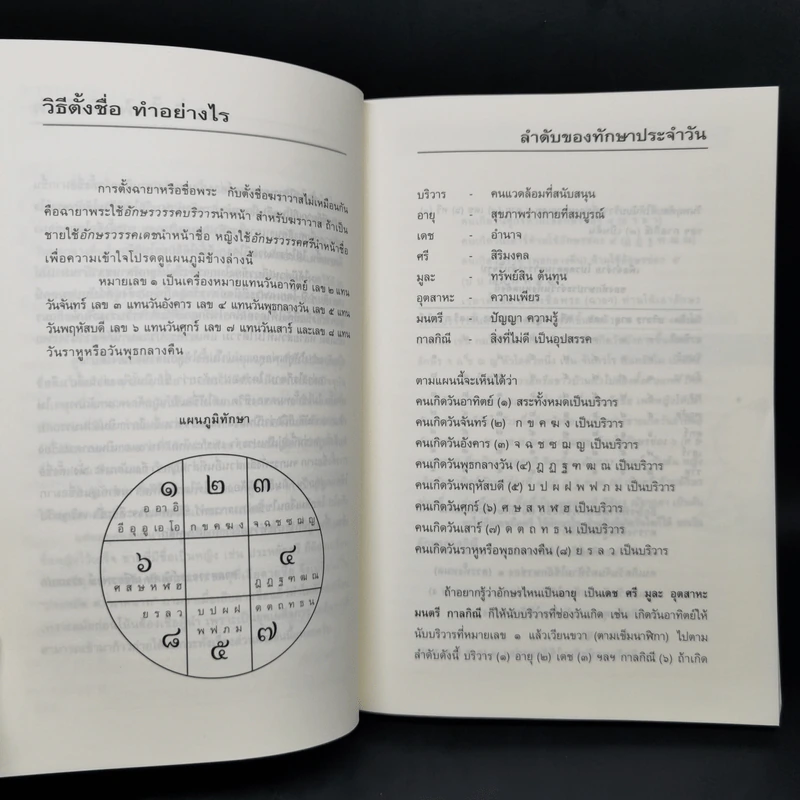 วิธีตั้งชื่อ ทำอย่างไร
การตั้งฉายาหรือชื่อพระ กับตั้งชื่อฆราวาสไม่เหมือนกัน
คือฉายาพระใช้อักษรวรรคบริวารนำหน้า สำหรับฆราวาส ถ้าเป็น
ชายใช้อักษรวรรคเดชนำหน้าชื่อ หญิงใช้อักษรวรรคศรีนำหน้าชื่อ
เพื่อความเข้าใจโปรดดูแผนภูมิข้างล่างนี้
หมายเลข ๑ เป็นเครื่องหมายแทนวันอาทิตย์ เลข ๒ แทน
วันจันทร์ เลข ๓ แทนวันอังคาร เลข ๔ แทนวันพุธกลางวัน เลข ๕ แทน
วันพฤหัสบดี เลข ๖ แทนวันศุกร์ เลข ๗ แทนวันเสาร์ และเลข ๘ แทน
วันราหูหรือวันพุธกลางคืน
แผนภูมิทักษา
๑ ๒ ๓
อ อา อิ
อี อุ อู เอ โอ ก ข ค ฆ ง จ ฉ ช ซ ฌ ญ
๖ ๔
ศ ส ษ ห ฬ ฮ ฎ ฏ ฐ ฑ ฒ ณ
ย ร ล ว บ ป ผ ฝ ด ต ถ ท ธ น
พ ฟ ภ ม
๘ ๕ ๗
ลำดับของทักษาประจำวัน
บริวาร - คนแวดล้อมที่สนับสนุน
อายุ - สุขภาพร่างกายที่สมบูรณ์
เดช - อำนาจ
ศรี - สิริมงคล
มูละ - ทรัพย์สิน ต้นทุน
อุตสาหะ - ความเพียร
มนตรี - ปัญญา ความรู้
กาลกิณี - สิ่งที่ไม่ดี เป็นอุปสรรค
ตามแผนนี้จะเห็นได้ว่า
คนเกิดวันอาทิตย์ (๑) สระทั้งหมดเป็นบริวาร
คนเกิดวันจันทร์ (๒) ก ข ค ฆ ง เป็นบริวาร
คนเกิดวันอังคาร (๓) จ ฉ ช ซ ฌ ญ เป็นบริวาร
คนเกิดวันพุธกลางวัน (๔) ฎ ฏ ฐ ฑ ฒ ณ เป็นบริวาร
คนเกิดวันพฤหัสบดี (๕) บ ป ผ ฝ พ ฟ ภ ม เป็นบริวาร
คนเกิดวันศุกร์ (๖) ศ ษ ส ห ฬ ฮ เป็นบริวาร
คนเกิดวันเสาร์ (๗) ด ต ถ ท ธ น เป็นบริวาร
คนเกิดวันราหูหรือพุธกลางคืน (๘) ย ร ล ว เป็นบริวาร
ถ้าอยากรู้ว่าอักษรไหนเป็นอายุ เป็นเดช ศรี มูละ อุตสาหะ
มนตรี กาลกิณี ก็ให้นับบริวารที่ช่องวันเกิด เช่น เกิดวันอาทิตย์ให้
นับบริวารที่หมายเลข ๑ แล้วเวียนขวา (ตามเข็มนาฬิกา) ไปตาม
ลำดับดังนี้ บริวาร (๑) อายุ (๒) เดช (๓) ฯลฯ กาลกิณี (๖) ถ้าเกิด